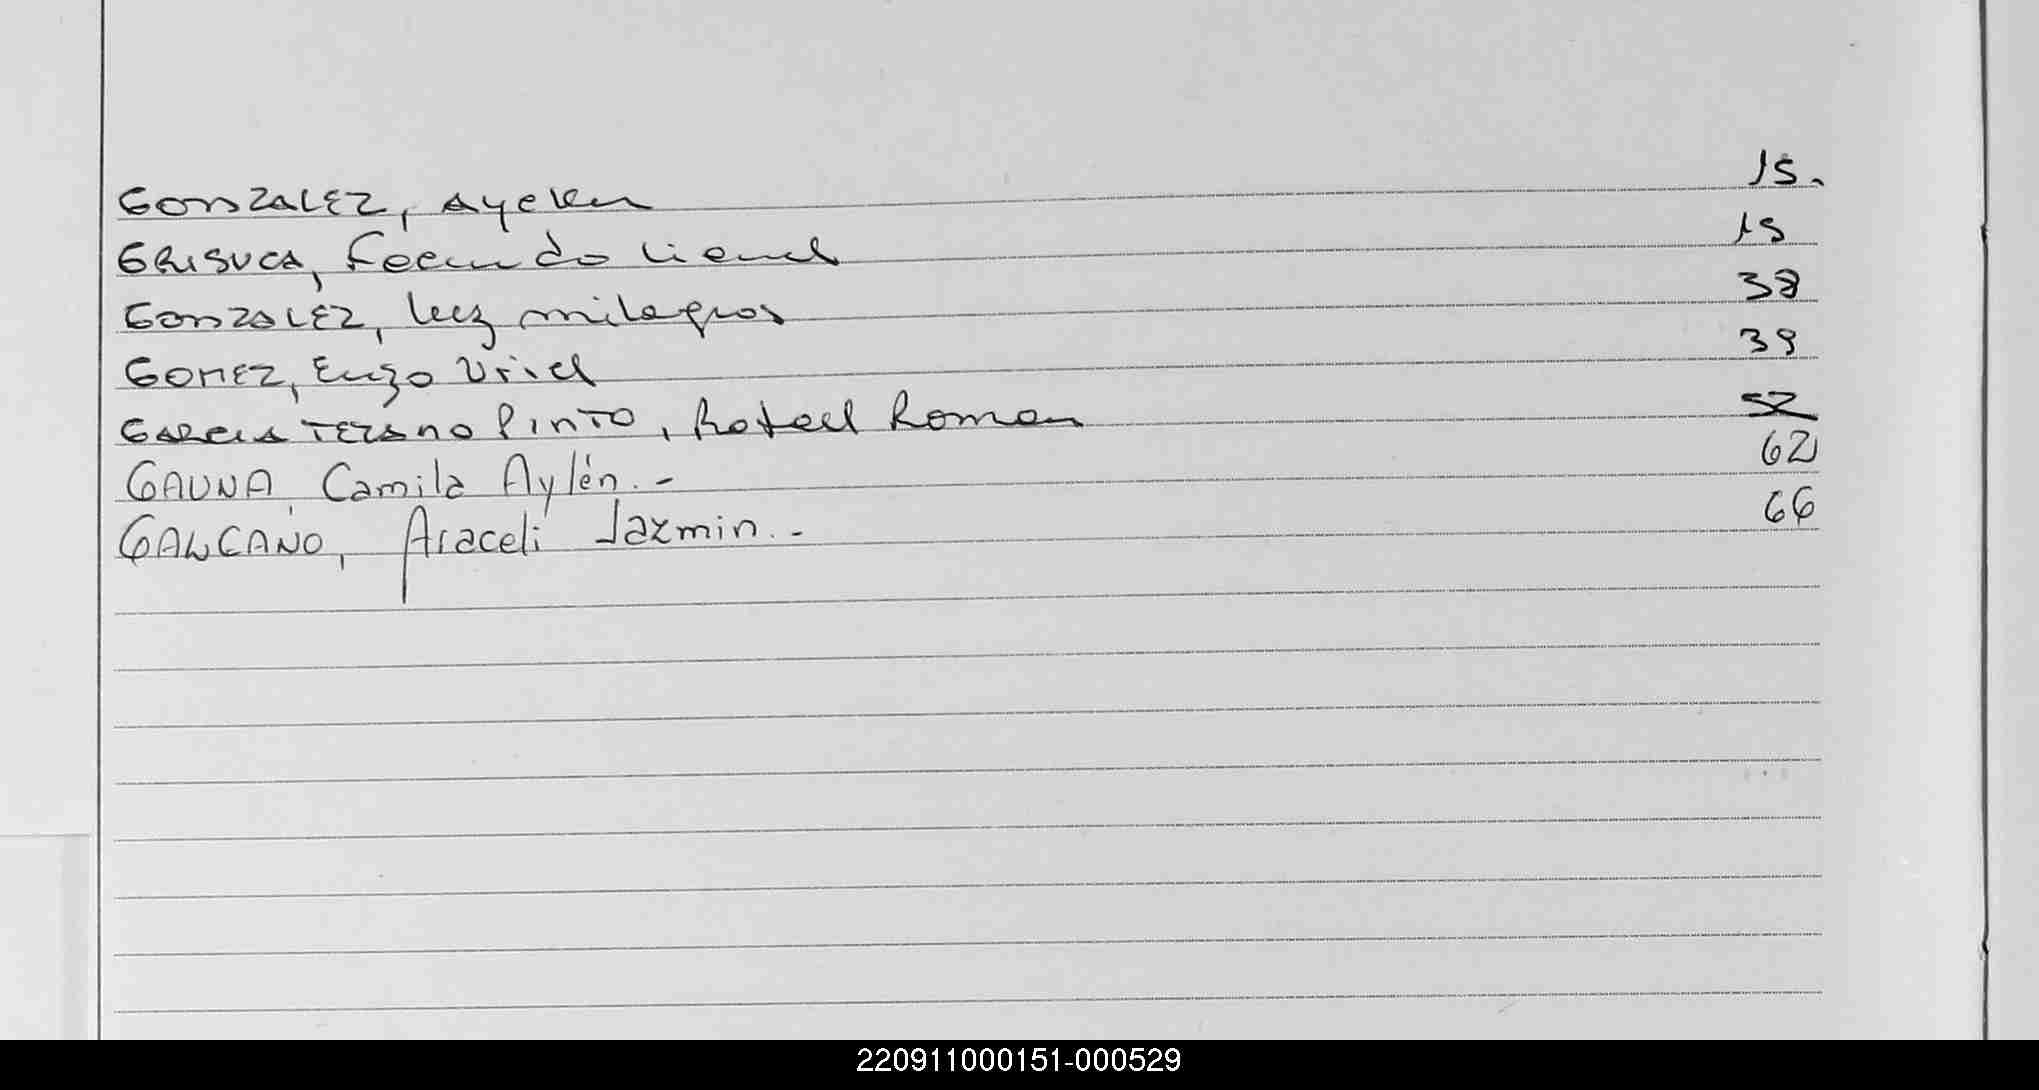 GONZALEZ, Ayelen 15.
GRISUCA, Facundo Lionel 15
GONZALEZ, Luz milagros 38
GOMEZ, Enzo Uriel 39
GARCIA TERANO PINTO, Rafael Roman 52
GAUNA, Camila Aylén.- 62
GALCANO, Araceli Jazmin.- 66
220911000151-000529